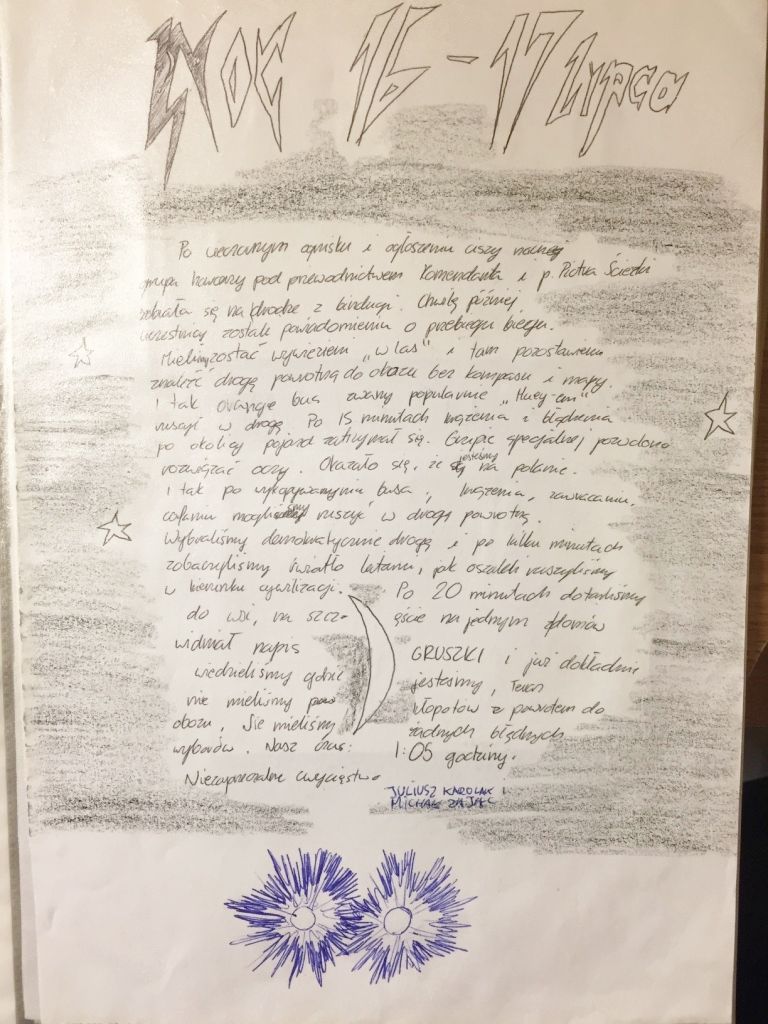 Noc 16-17 Lipca
Po wieczornym apelu i ogłoszeniu ciszy nocnej
grupa pod przewodnictwem Komendanta i p. Piotra Ścieżki
zebrała się na drodze z bindugi. Chwilę później
uczestnicy zostali powiadomieni o przebiegu biegu.
Mieli zostać wywiezieni „w las" i tam pozostawieni
znaleźć drogę powrotną do obozu bez kompasu i mapy.
I tak bus zwany popularnie
ruszył w drogę. Po 15 minutach krążenia i błądzenia
po okolicy pojazd zatrzymał się. Grupie specjalnej pozwolono
rozwiązać oczy. Okazało się, że jesteśmy na polanie.
I tak po busa, krążenia, zawracaniu,
cofaniu mogliśmy ruszyć w drogę powrotną.
Wybraliśmy demokratycznie drogę i po kilku minutach
zobaczyliśmy światło latarni, jak oszaleli ruszyliśmy
w kierunku cywilizacji. Po 20 minutach dotarliśmy
do wsi, na szczęście na jednym z płotów
widniał napis GRUSZKI i już dokładnie
wiedzieliśmy gdzie jesteśmy, Teraz
nie mieliśmy kłopotów z powrotem do
obozu, Nie mieliśmy żadnych błędnych
wyborów. Nasz czas: 1:05 godziny.
Niezaprzeczalne zwycięstwo
JULIUSZ KAROLAK i
MICHAŁ ZAJĄC